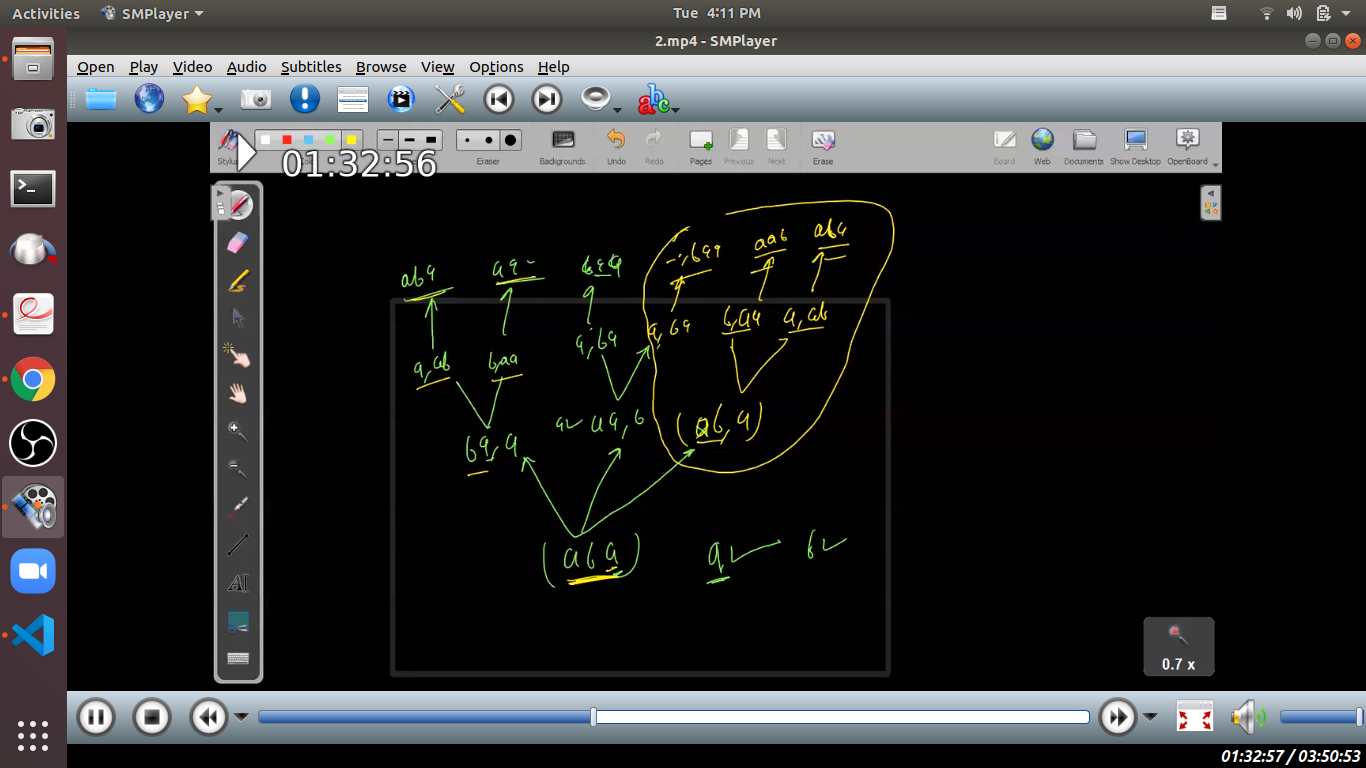 Activities SMPlayer Tue 4:11 PM
2.mp4 - SMPlayer
Open Play Video Audio Subtitles Browse View Options Help
abc
Stylus Eraser Backgrounds Undo Redo Pages Previous Next Erase Board Web Documents Show Desktop OpenBoard
01:32:56
aab aba
aba baa
b,aa a,ab
a,ba a,ba
a,ab b,aa
aa,b (ab,a)
ba,a
(aba) a b
AI
0.7 x
01:32:57 / 03:50:53